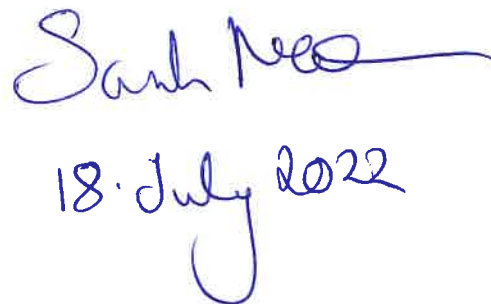 Sarah
18. July 2022